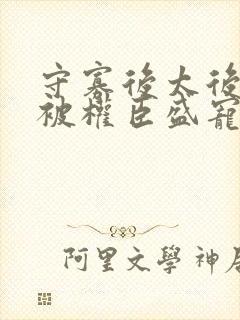 守寡後太後
被權臣盛寵
阿里文學 神居